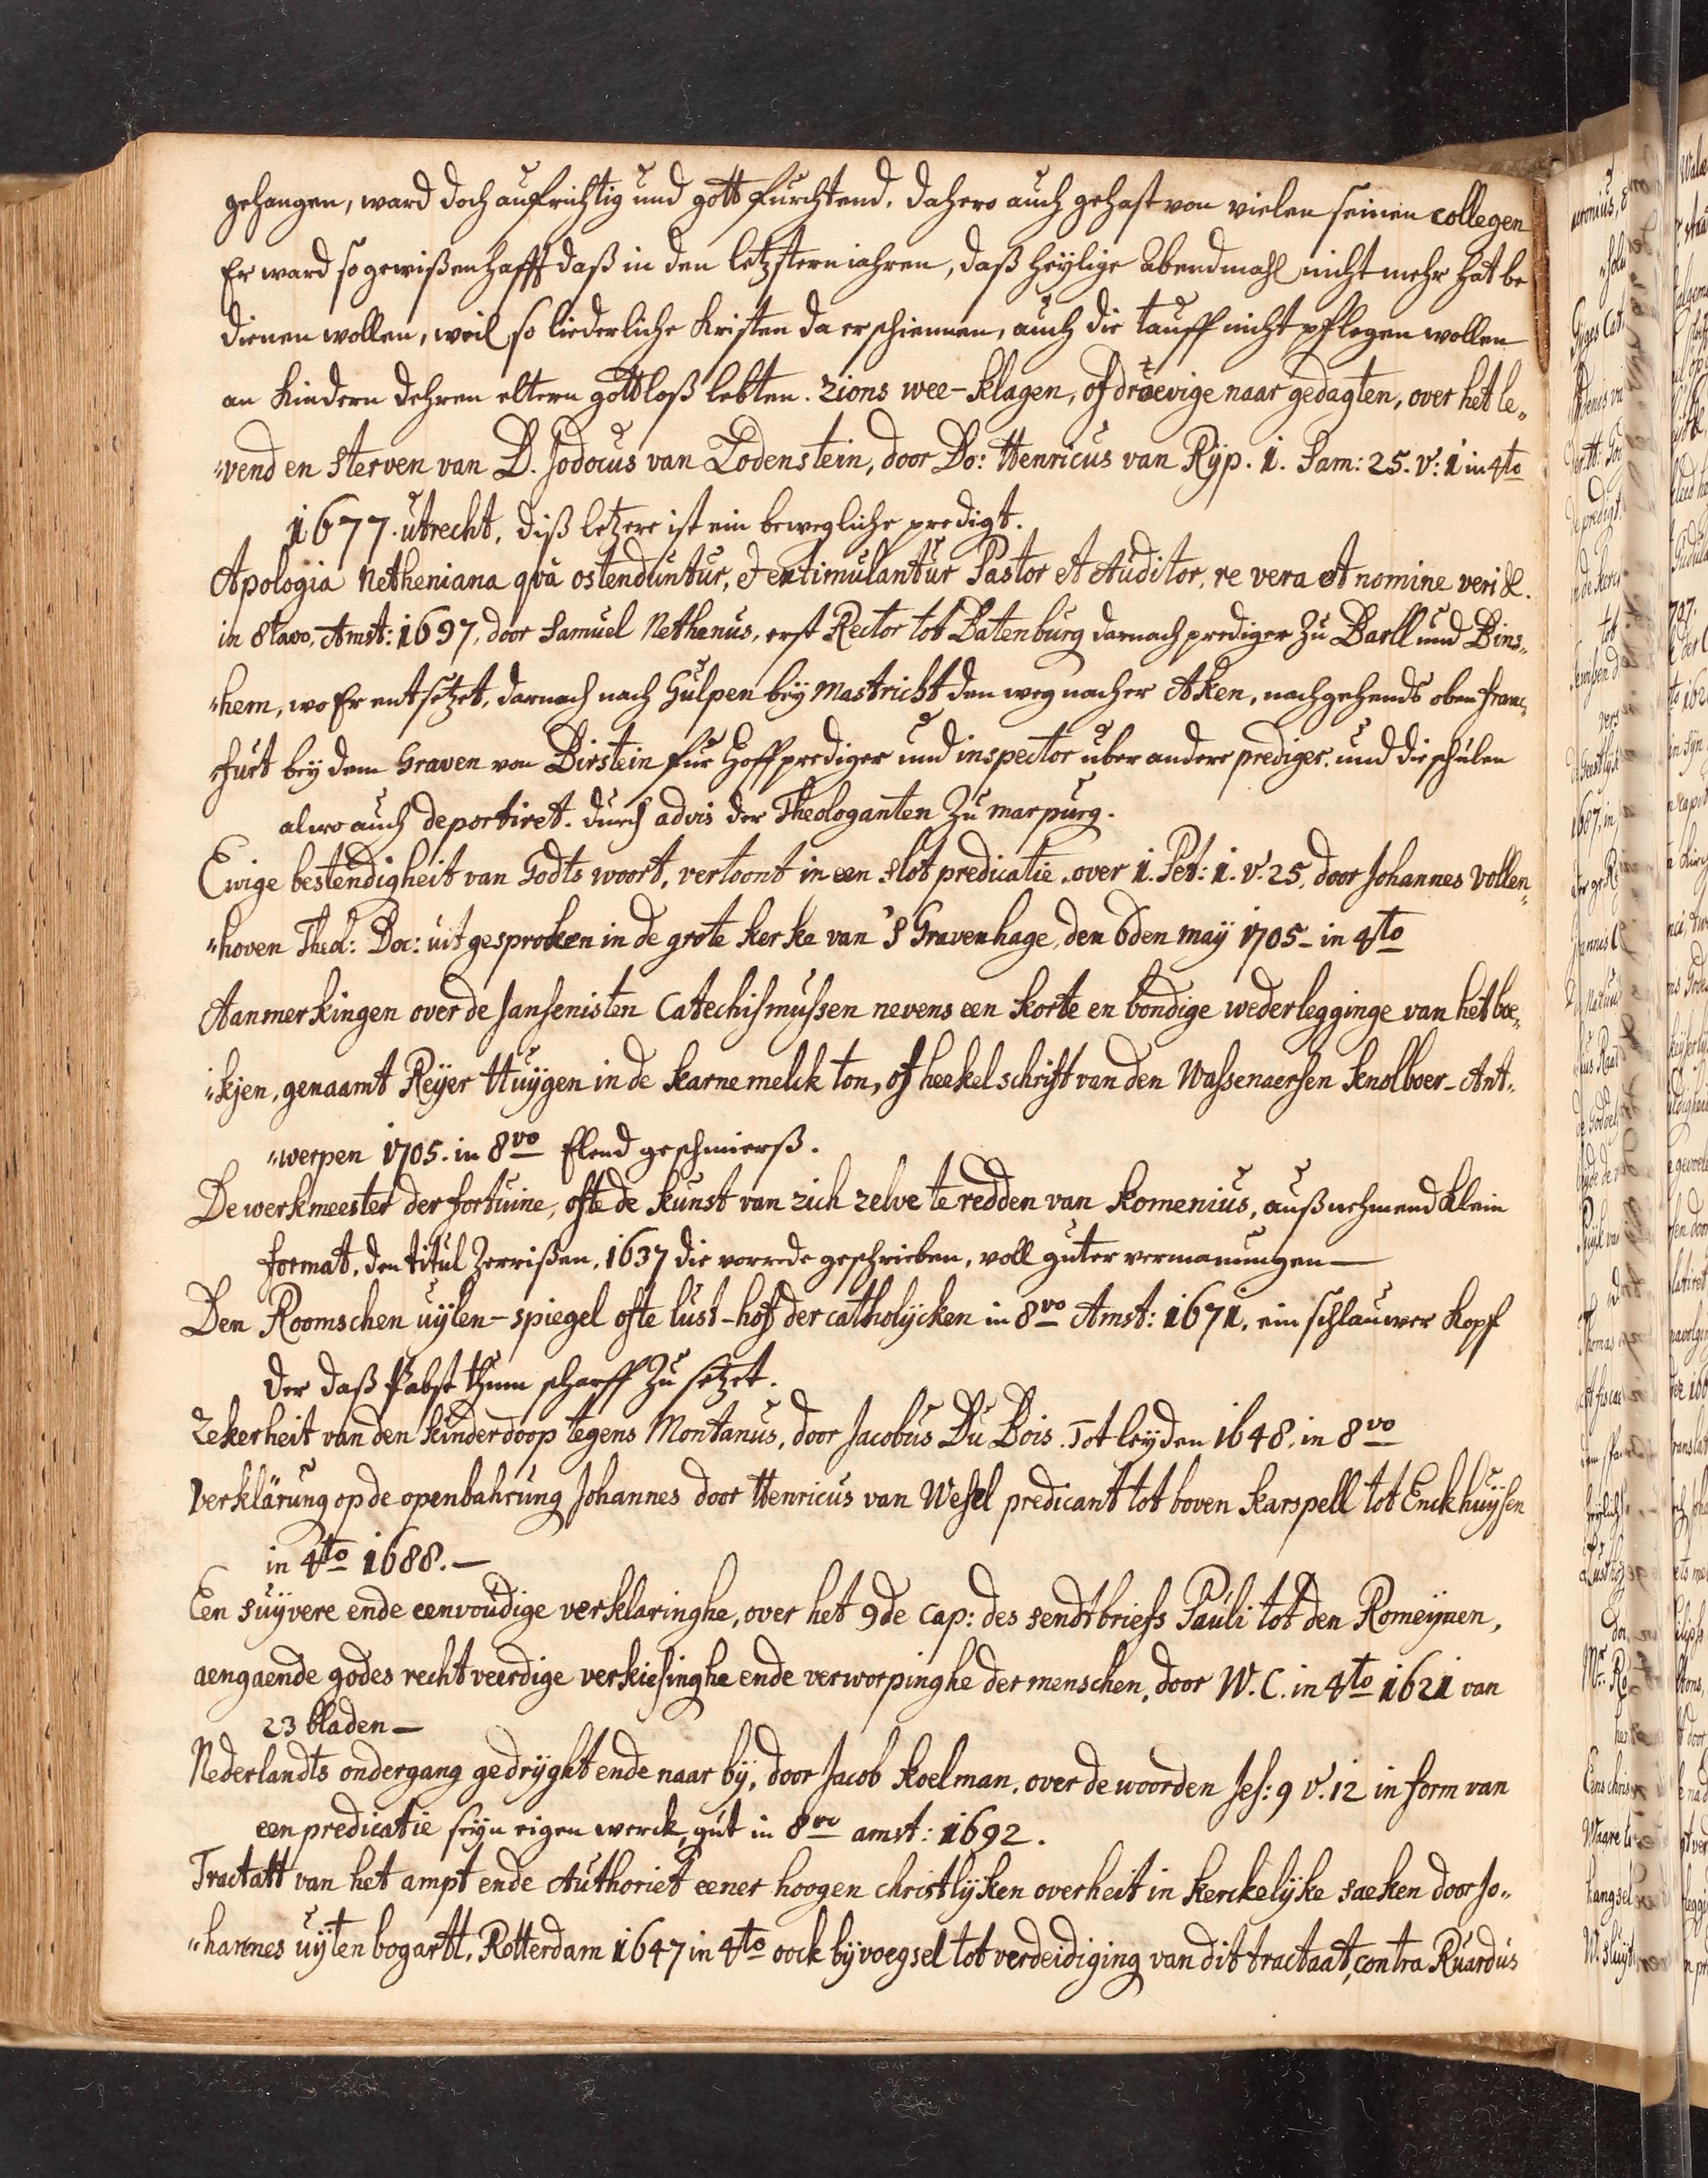 gehangen, ward doch aufrichtig und gott furchtend, dahero auch gehast von vielen seinen collegen
Er ward so gewißenhafft daß in den letzstern iahren, daß heylige abendmahl nicht mehr hat be
dienen wollen, weil so liederliche Kristen da erschiennen, auch die tauff nicht pflegen wollen
an kindern dehren eltern gottloß lebten. Zions wee-klagen, of droevige naar gedagten, over het le„
„vend en sterven van D. Jodocus van Lodenstein, door Do: Henricus van Rijp. 1. Sam: 25. v: 1 in 4to
1677. utrecht, diß letzere ist ein bewegliche predigt.
Apologia Netheniana qvâ ostenduntur, et extimulantur Pastor et Auditor, re vera et nomine veri &.
in 8tavo, Amst: 1697, door Samuel Nethenus, erst Rector tot Batenburg darnach prediger zu Barll und Bins„
„hem, wo Er entsetzet, darnach nach Gulpen beÿ Mastricht den weg nacher Aken, nachgehends oben franc„
„furt beÿ dem Graven von Birstein fur Hoffprediger und inspector uber andere prediger, und die schulen
alwo auch deportiret. durch advis der Theologanten zu marpurg.
Ewige bestendigheit van Godts woort, vertoont in een slot predicatie over 1. Pet: 1. v. 25, door Johannes Vollen„
„hoven Theol: Doc: uitgesproken in de grote kerke van 's Gravenhage, den 6den maÿ 1705 - in 4to
Aanmerkingen over de Jansenisten Catechismussen nevens een korte en bondige wederlegginge van het boe„
„kjen, genaamt Reÿer Huÿgen in de karnemelck ton, of heekelschrift van den Wassenaersen knolboer - Ant„
„werpen 1705. in 8vo Elend geschmierß.
De werkmeester der fortuine, ofte de kunst van zich zelve te redden van Komenius, außnehmend klein
format, den titul zerrißen, 1637 die vorrede geschrieben, voll guter vermanungen —
Den Roomschen uÿlen-spiegel ofte lust-hof der catholÿcken in 8vo Amst: 1671, ein schlauwer kopf
der daß Pabstthum scharff zu setzet.
Zekerheit van den kinderdoop tegens Montanus, door Jacobus Du Bois. Tot leÿden 1648. in 8vo
Verklärung op de openbahrung Johannes door Henricus van Wesel predicant tot boven karspell tot Enckhuÿsen
in 4to 1688. —
Een suÿvere ende eenvoudige verklaringhe, over het 9de cap: des sendtbriefs Pauli tot den Romeÿnen,
aengaende godes rechtveerdige verkiesinghe ende verworpinghe der menschen, door W. C. in 4to 1621 van
23 bladen —
Nederlandts ondergang gedrÿght ende naar bÿ, door Jacob Koelman, over de woorden Jes: 9 v. 12 in form van
een predicatie seÿn eigen werck, gut in 8vo amst: 1692.
Tractatt van het ampt ende Authoriet eener hoogen christlÿken overheit in kerckelÿke saeken door Jo„
„hannes uÿtenbogartt, Rotterdam 1647 in 4to oock bÿvoegsel tot verdeidiging van dit tractaat, contra Ruardus